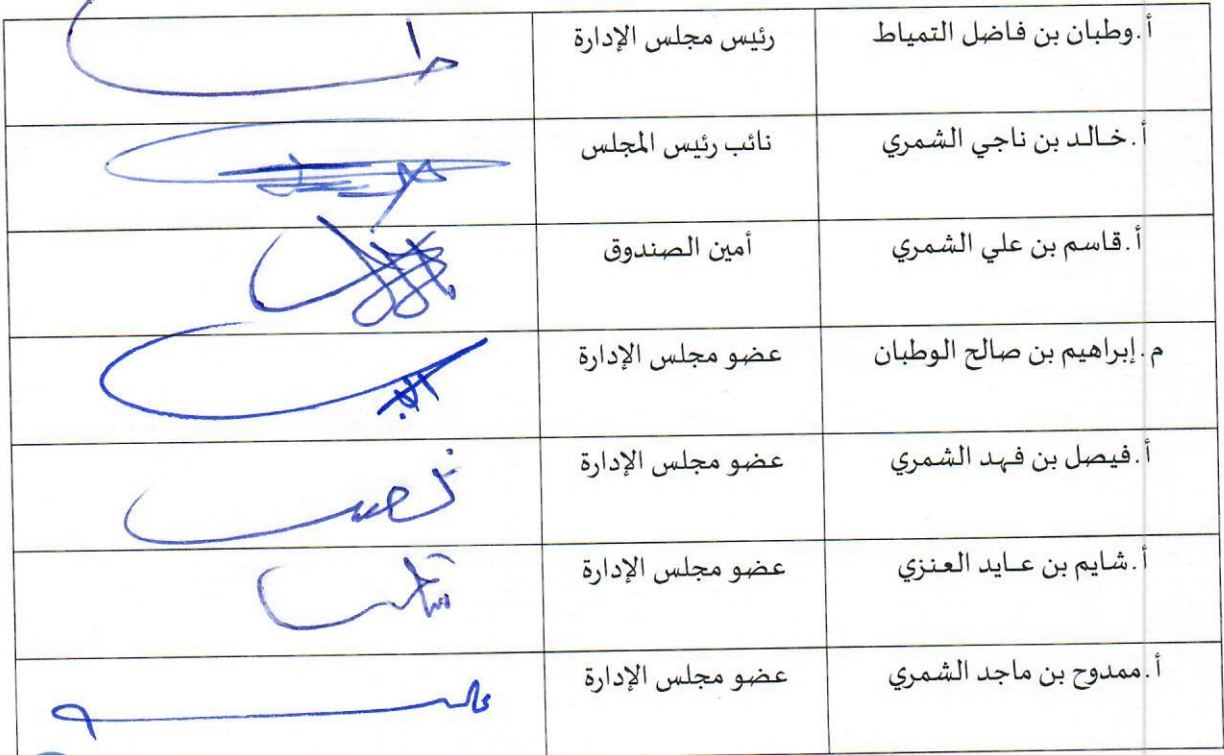 أ.وطبان بن فاضل التمياط رئيس مجلس الإدارة
أ.خالد بن ناجي الشمري نائب رئيس المجلس
أ.قاسم بن علي الشمري أمين الصندوق
م.إبراهيم بن صالح الوطبان عضو مجلس الإدارة
أ.فيصل بن فهد الشمري عضو مجلس الإدارة
أ.شايم بن عايد العنزي عضو مجلس الإدارة
أ.ممدوح بن ماجد الشمري عضو مجلس الإدارة